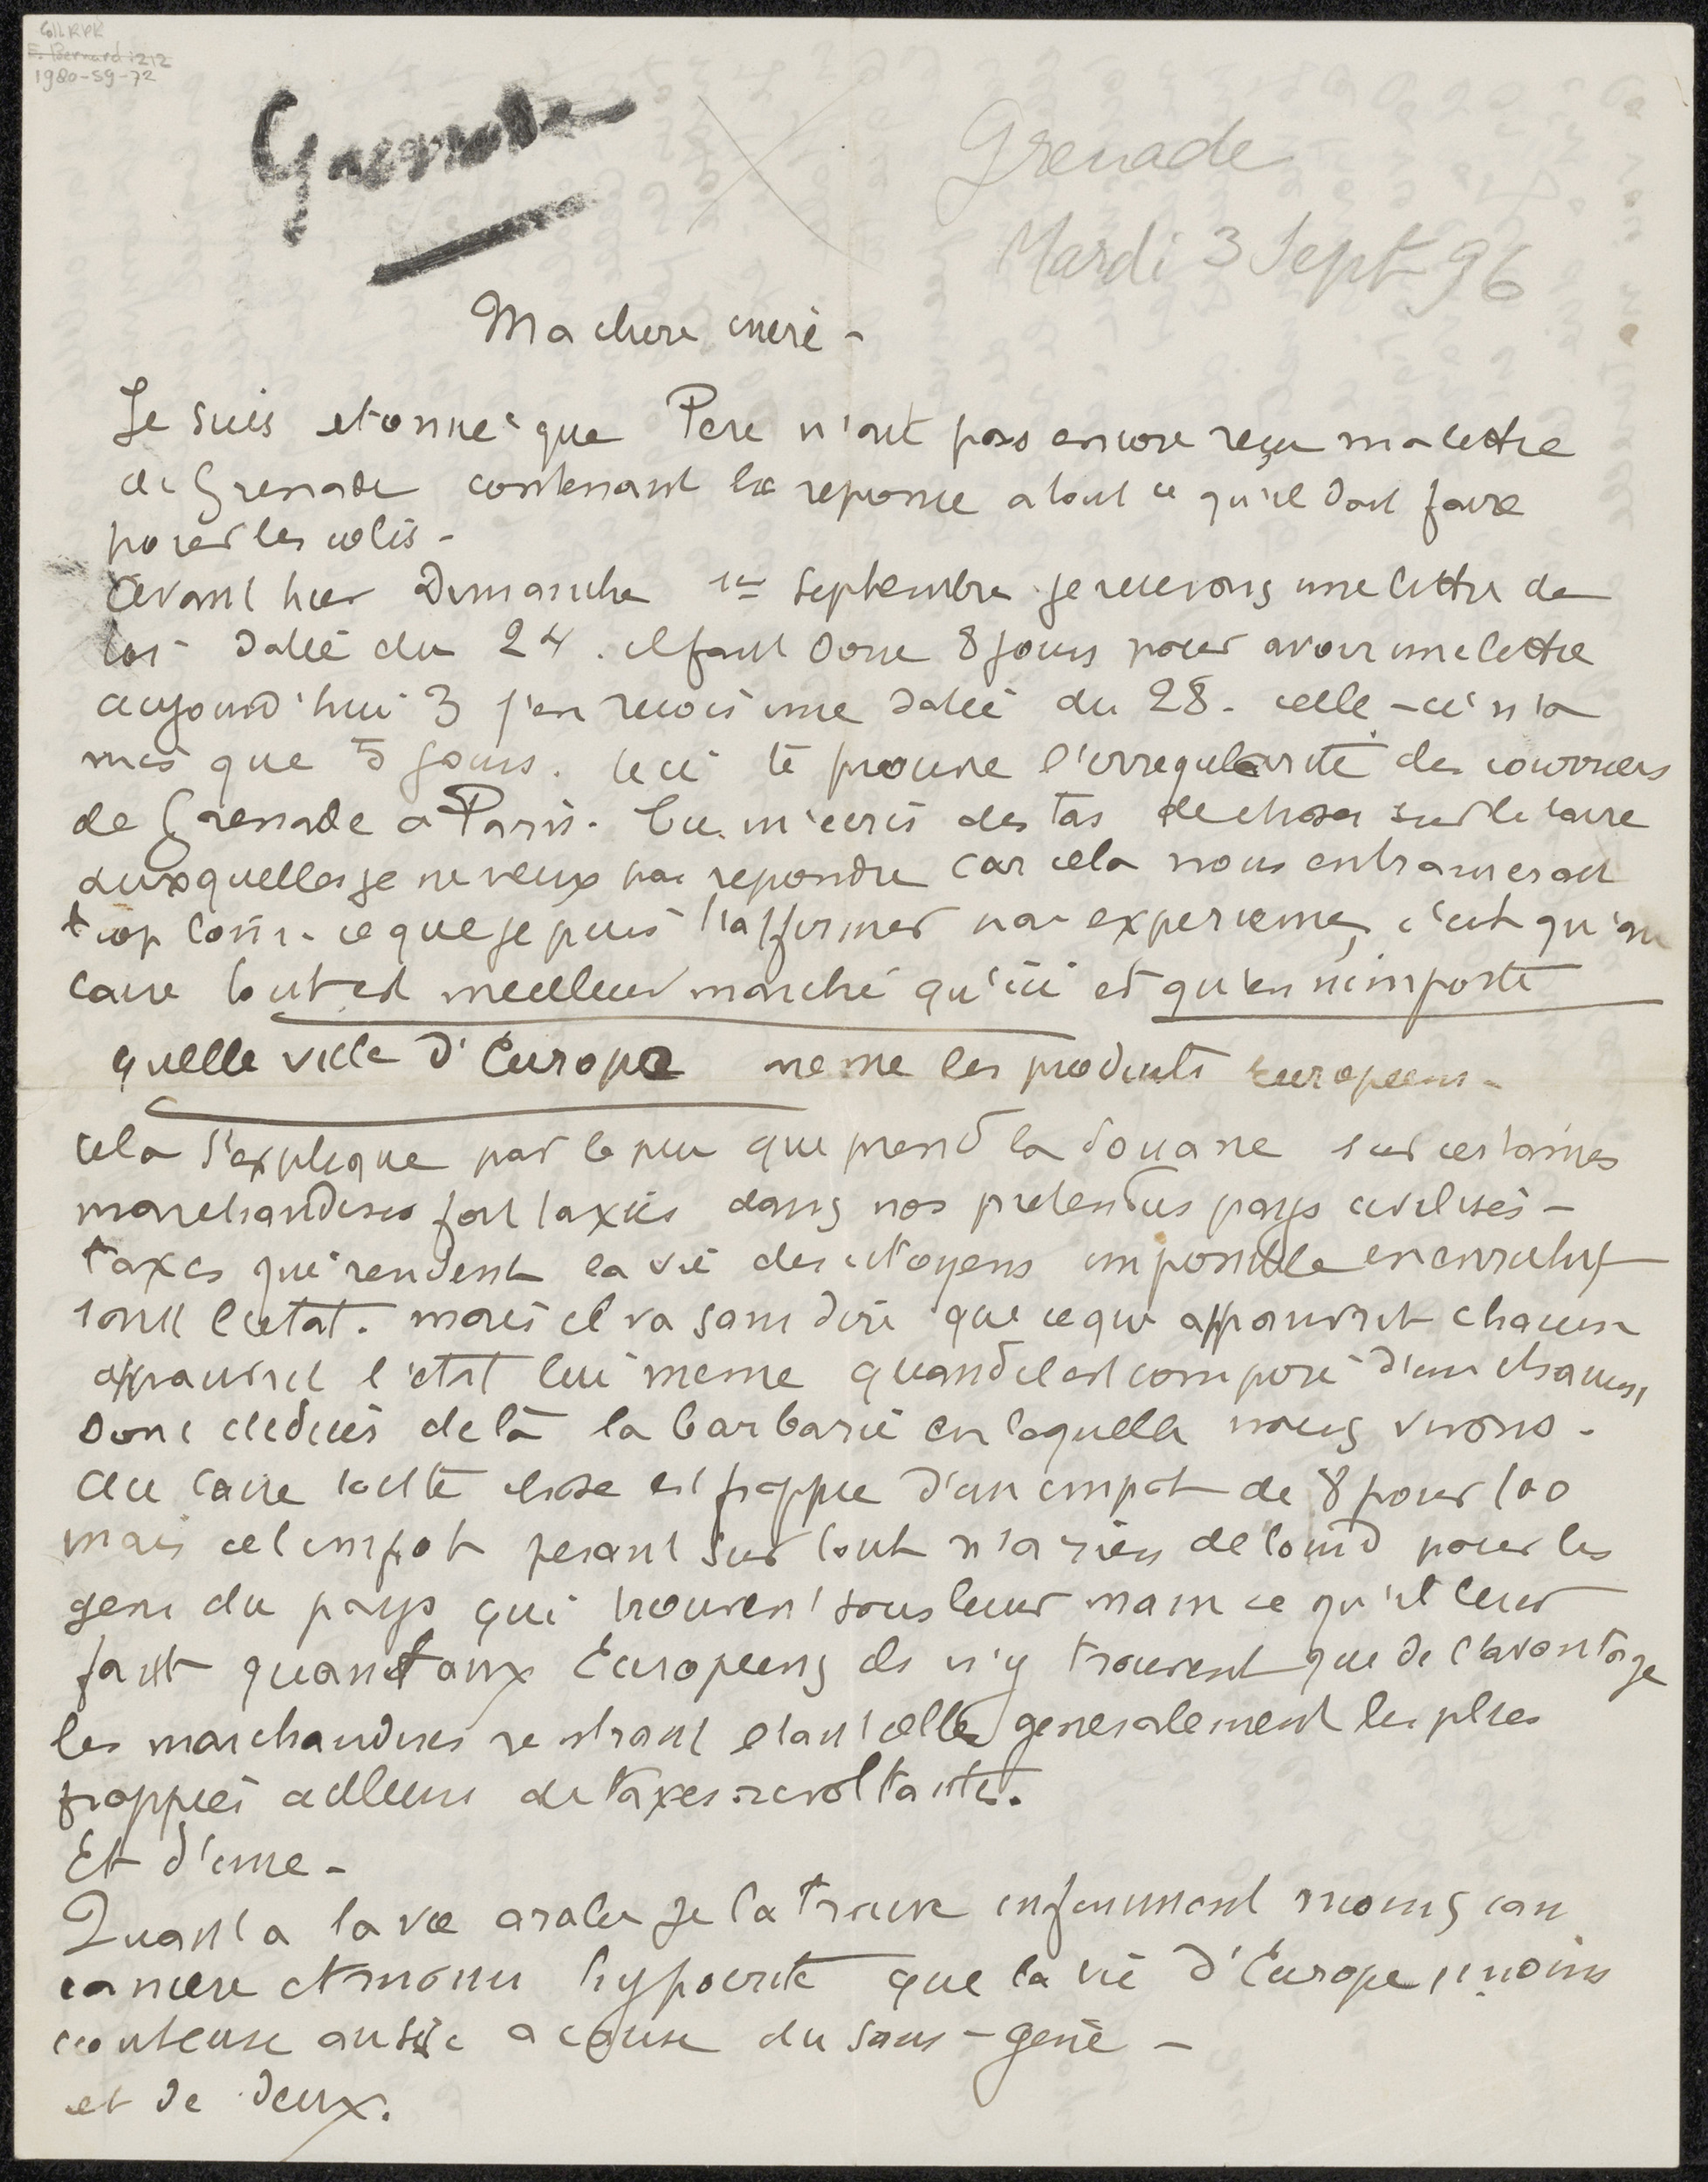 E. Bernard i212
1980-59-72
Grenade
Grenade
Mardi 3 Sept 96
Ma chere mere -
Je suis etonné que Pere n'ait pas encore reçu ma lettre
de Grenade contenant la reponse a tout ce qu'il doit faire
pour les colis -
Avant hier Dimanche 1er Septembre je recevais une lettre de
toi datée du 24. il faut donc 8 jours pour avoir une lettre
aujourd'hui 3 j'en recois une datée du 28. celle-ci n'a
mis que 5 jours. ceci te prouve l'irregularité des courriers
de Grenade a Paris. Tu m'ecris des tas de choses sur le Caire
auxquelles je ne veux pas repondre car cela nous entrainerait
trop loin. ce que je puis t'affirmer par experience, c'est qu'au
Caire tout est meilleur marché qu'ici et qu'en nimporte
quelle ville d'Europe meme les produits Europeens -
cela s'explique par le peu que prend la douane sur certaines
marchandises fort taxées dans nos pretendus pays civilisés -
taxes qui rendent la vie des citoyens impossible enrichissant
l'etat. mais il va sans dire que ce qui appauvrit chacun
appauvrit l'etat lui meme quand il est composé d'un chacun,
donc deduis de là la barbarie en laquelle nous vivons.
Au Caire toute chose est frappée d'un impot de 8 pour 100
mais cet impot pesant sur tout n'a rien de lourd pour les
gens du pays qui trouvent sous leur main ce qu'il leur
faut quant aux Europeens ils n'y trouvent que de l'avantage
les marchandises rentrant etant celles generalement les plus
frappées ailleurs de taxes revoltantes.
Et d'une -
Quant a la vie arabe je la trouve infiniment moins can
caniere et moins hypocrite que la vie d'Europe, moins
couteuse aussi a cause du sans-gene -
et de deux.